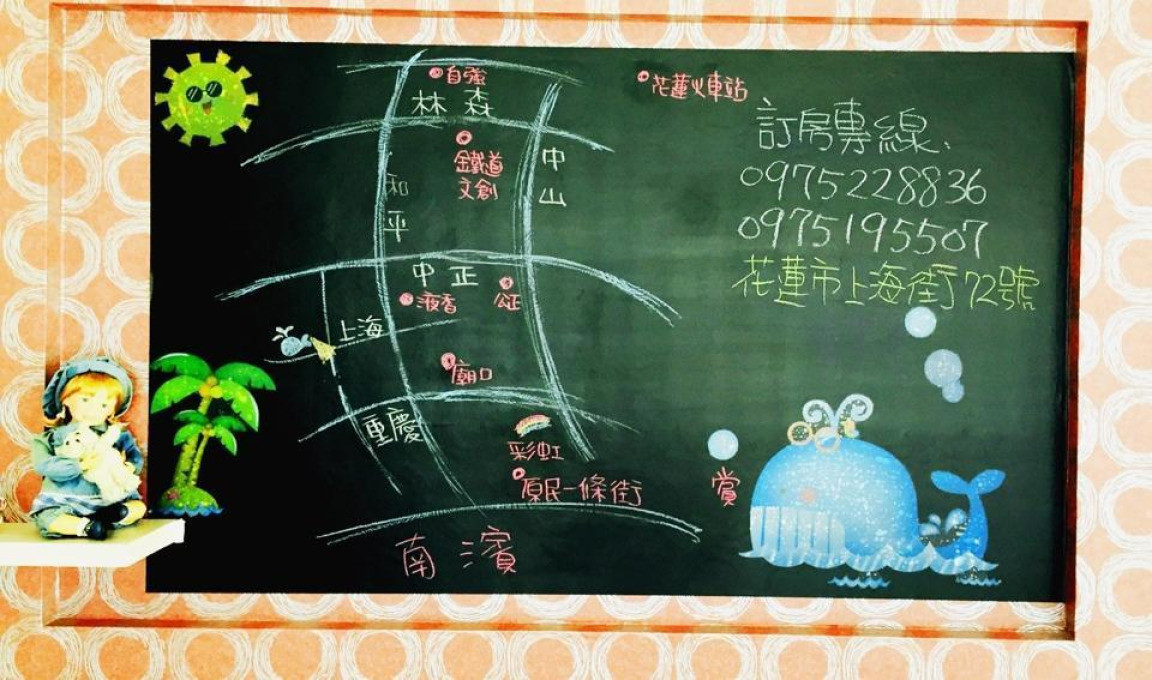 自強
花蓮火車站
林森
訂房專線、
鐵道
文創
中山
和平
0975228836
0975195507
花蓮市上海街72號
中正
液香
公正
上海
廟口
重慶
彩虹
原民一條街
賞
南濱